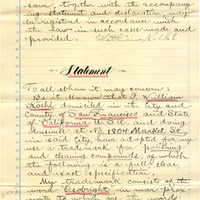 same, together with the accompany-
ing statement and declaration, may
be registered in accordance with
the law in such case made and
provided. William Kohl
Statement
To all whom it may concern:
Be it known that I, William
Kohl domiciled in the City and
County of San Francisco and State
of California U.S.A. and doing
business at No. 1804 Market St.
in said City, have adopted for my
use a trade mark for polishing
and cleaning compounds, of which
the following is a full, clear
and exact specification.
My trademark consists of the
word in near prox-
imity to which are the words